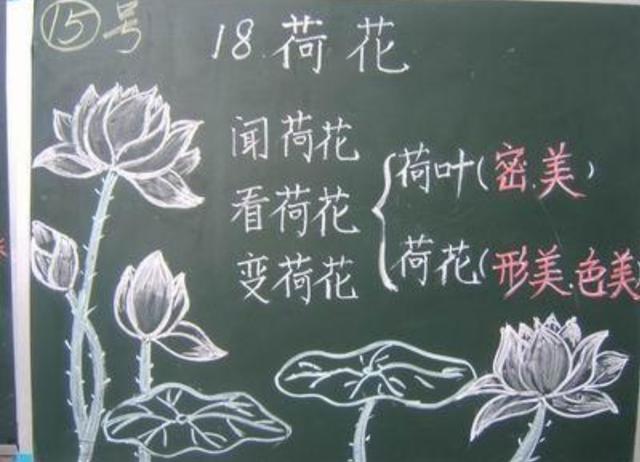 15号
18.荷花
闻荷花
看荷花
变荷花
荷叶(密.美)
荷花(形美.色美)